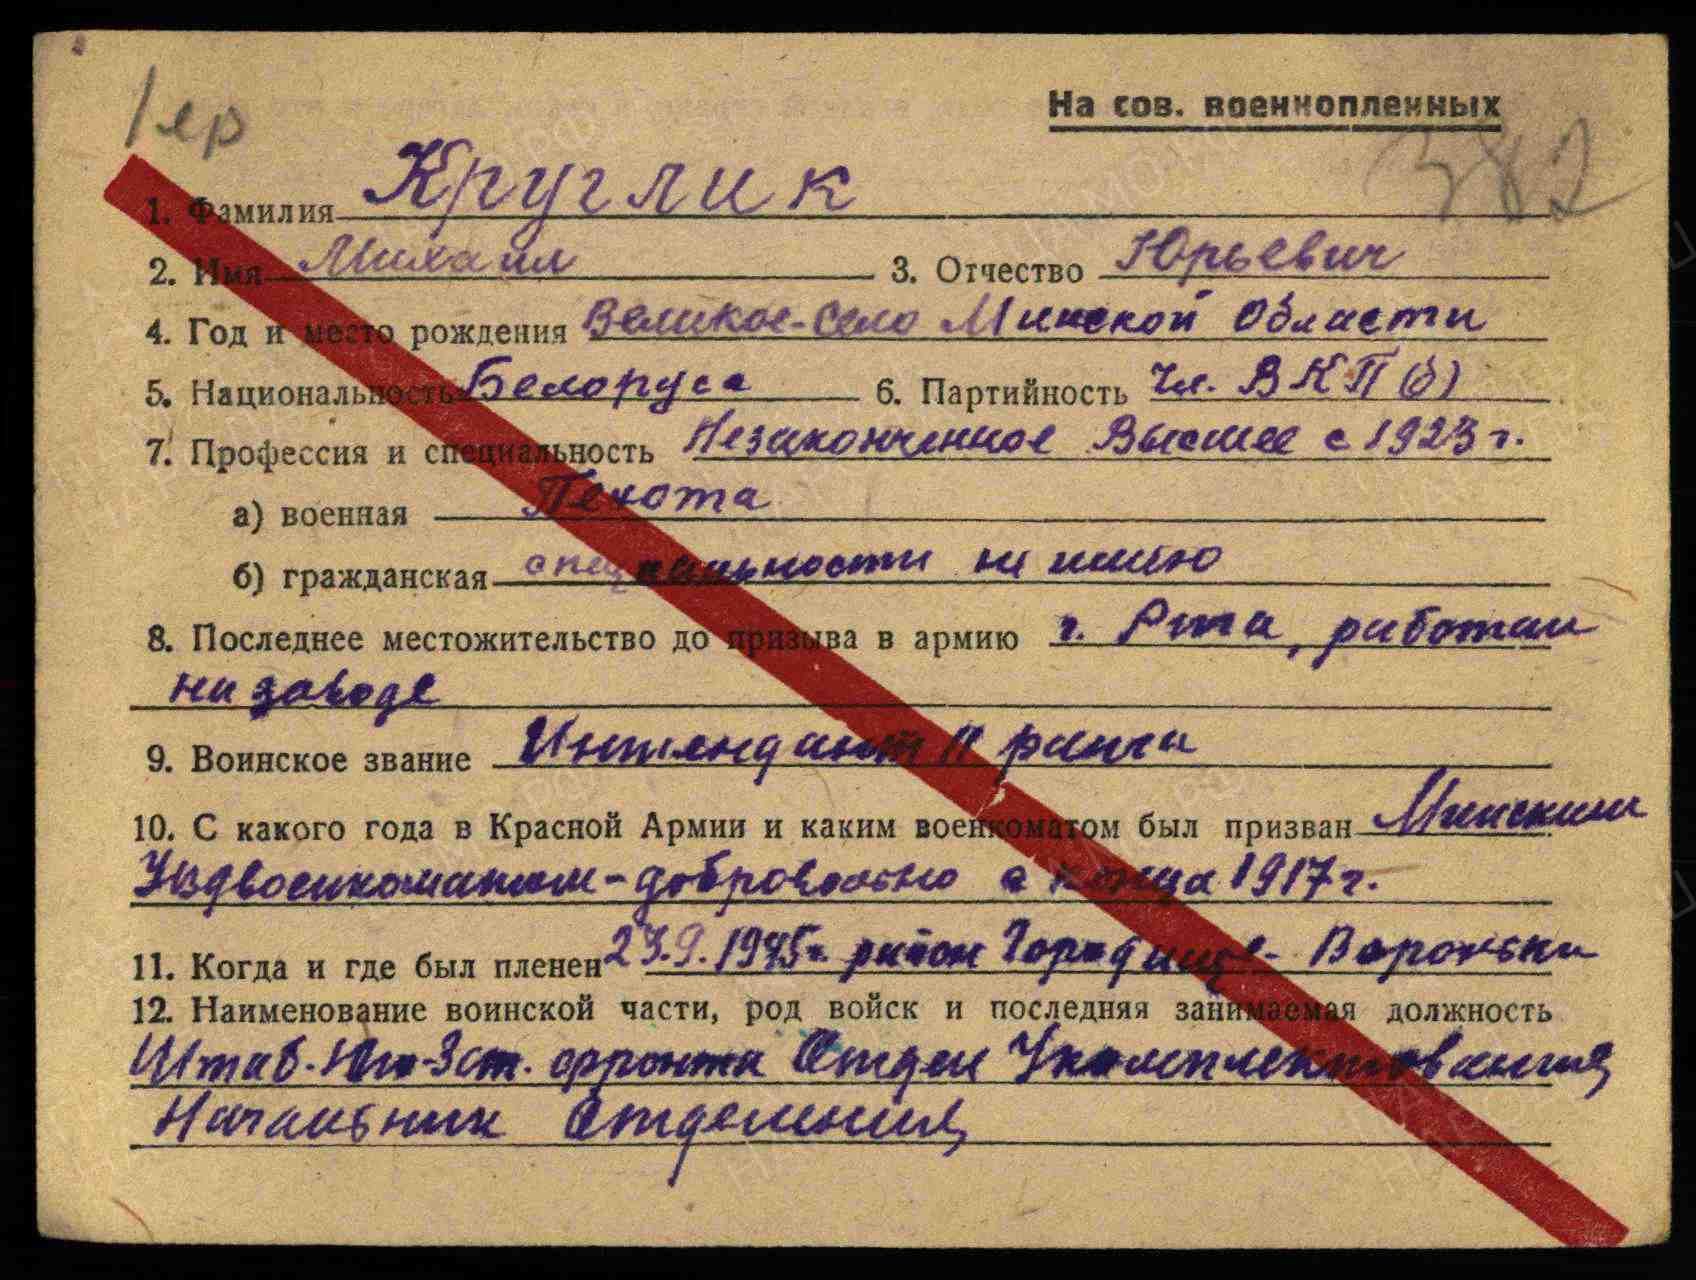 1 ер
На сов. военнопленных
382
1. Фамилия Круглик
2. Имя Михаил 3. Отчество Юрьевич
4. Год и место рождения Великое-село Минской Области
5. Национальность Белоруса 6. Партийность Чл. ВКП(б)
7. Профессия и специальность Незаконченное Высшее с 1923 г.
а) военная Пехота
б) гражданская специальности не имею
8. Последнее местожительство до призыва в армию г. Рига, работал
на заводе
9. Воинское звание Интендант II ранга
10. С какого года в Красной Армии и каким военкоматом был призван Минским
Уездвоенкоматом - добровольно с конца 1917 г.
11. Когда и где был пленен 23.9.1945г. район Городище - Вороньки
12. Наименование воинской части, род войск и последняя занимаемая должность
Штаб. Юго-Зап. фронта Отдел Укомплектования,
Начальник Отделения,